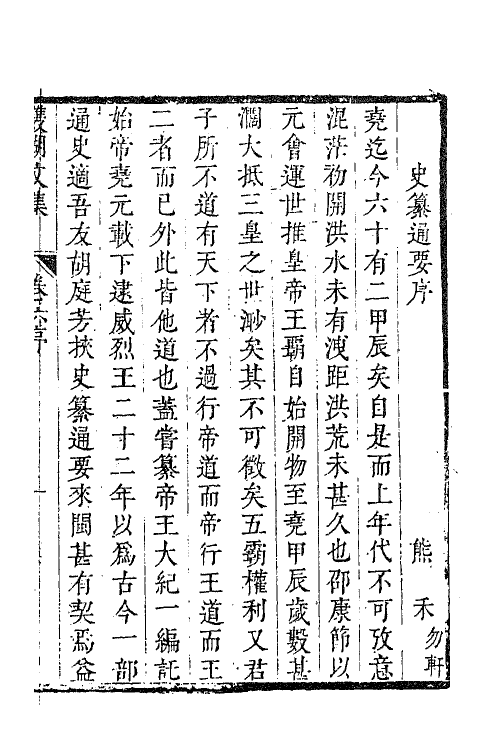 史纂通要序
熊禾勿軒
堯迄今六十有二甲辰矣自是而上年代不可攷意
混茫初開洪水未有洩距洪荒未甚久也邵康節以
元會運世推皇帝王霸自始開物至堯甲辰歲數甚
濶大抵三皇之世渺矣其不可徵矣五霸權利又君
子所不道有天下者不過行帝道而帝行王道而王
二者而已外此皆他道也蓋嘗纂帝王大紀一編託
始帝堯元載下逮威烈王二十二年以爲古今一部
通史適吾友胡庭芳挾史纂通要來閩甚有契焉益
雙湖文集
卷六序